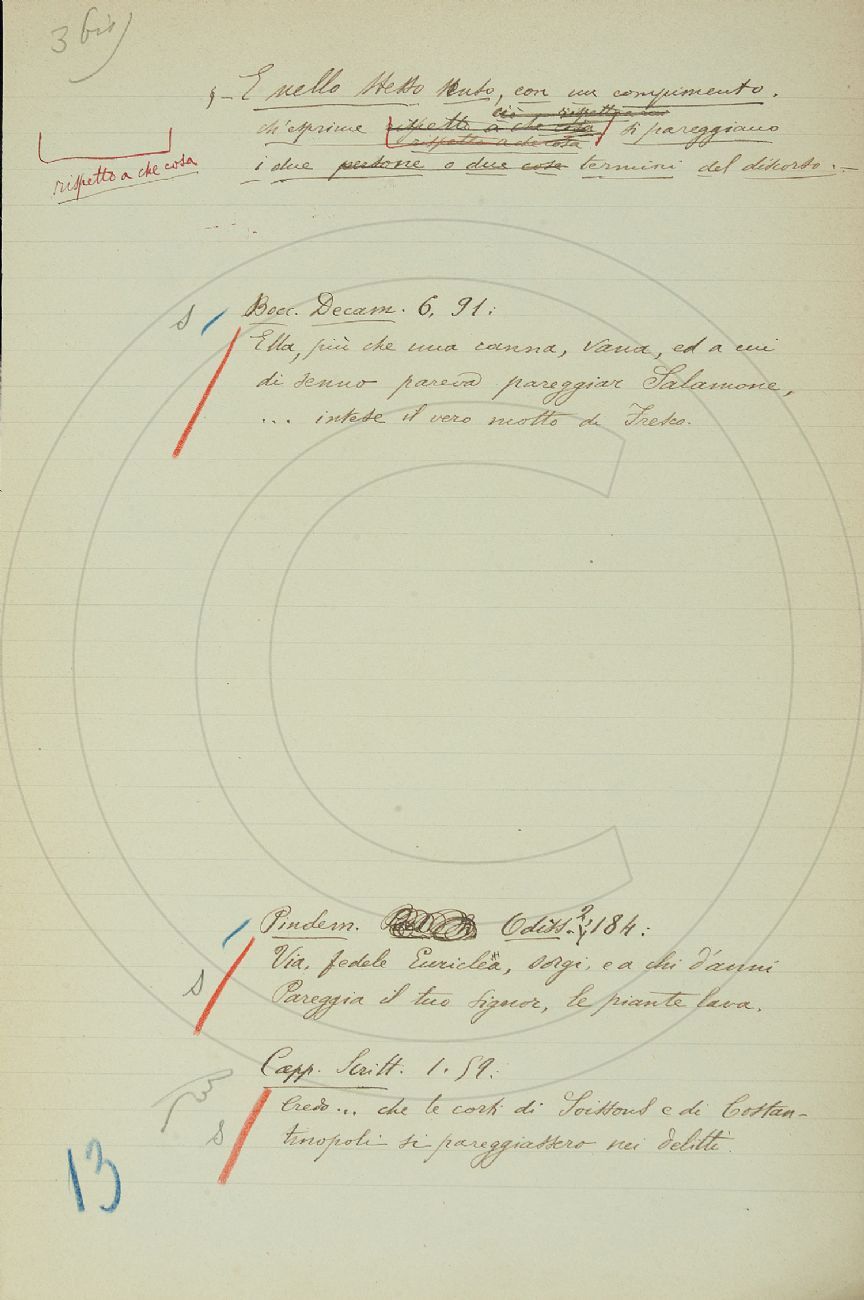 3 bis)
§ – E nello stesso senso, con un compimento
ciò rispetto a cui
ch'esprime rispetto a che cosa si pareggiano
rispetto a che cosa
rispetto a che cosa
i due persone o due cose termini del discorso. –
S Bocc. Decam. 6, 91:
Ella, più che una canna, vana, ed a cui
di senno pareva pareggiar Salamone,
... intese il vero motto di Fresco.
Pindem. Odiss. 2, 184:
Via, fedele Euriclèa, sorgi, e a chi d'anni
S Pareggia il tuo signor, le piante lava.
Capp. Scritt. 1. 59:
Credo... che le corti di Soissons e di Costan-
S tinopoli si pareggiassero nei delitti.
13